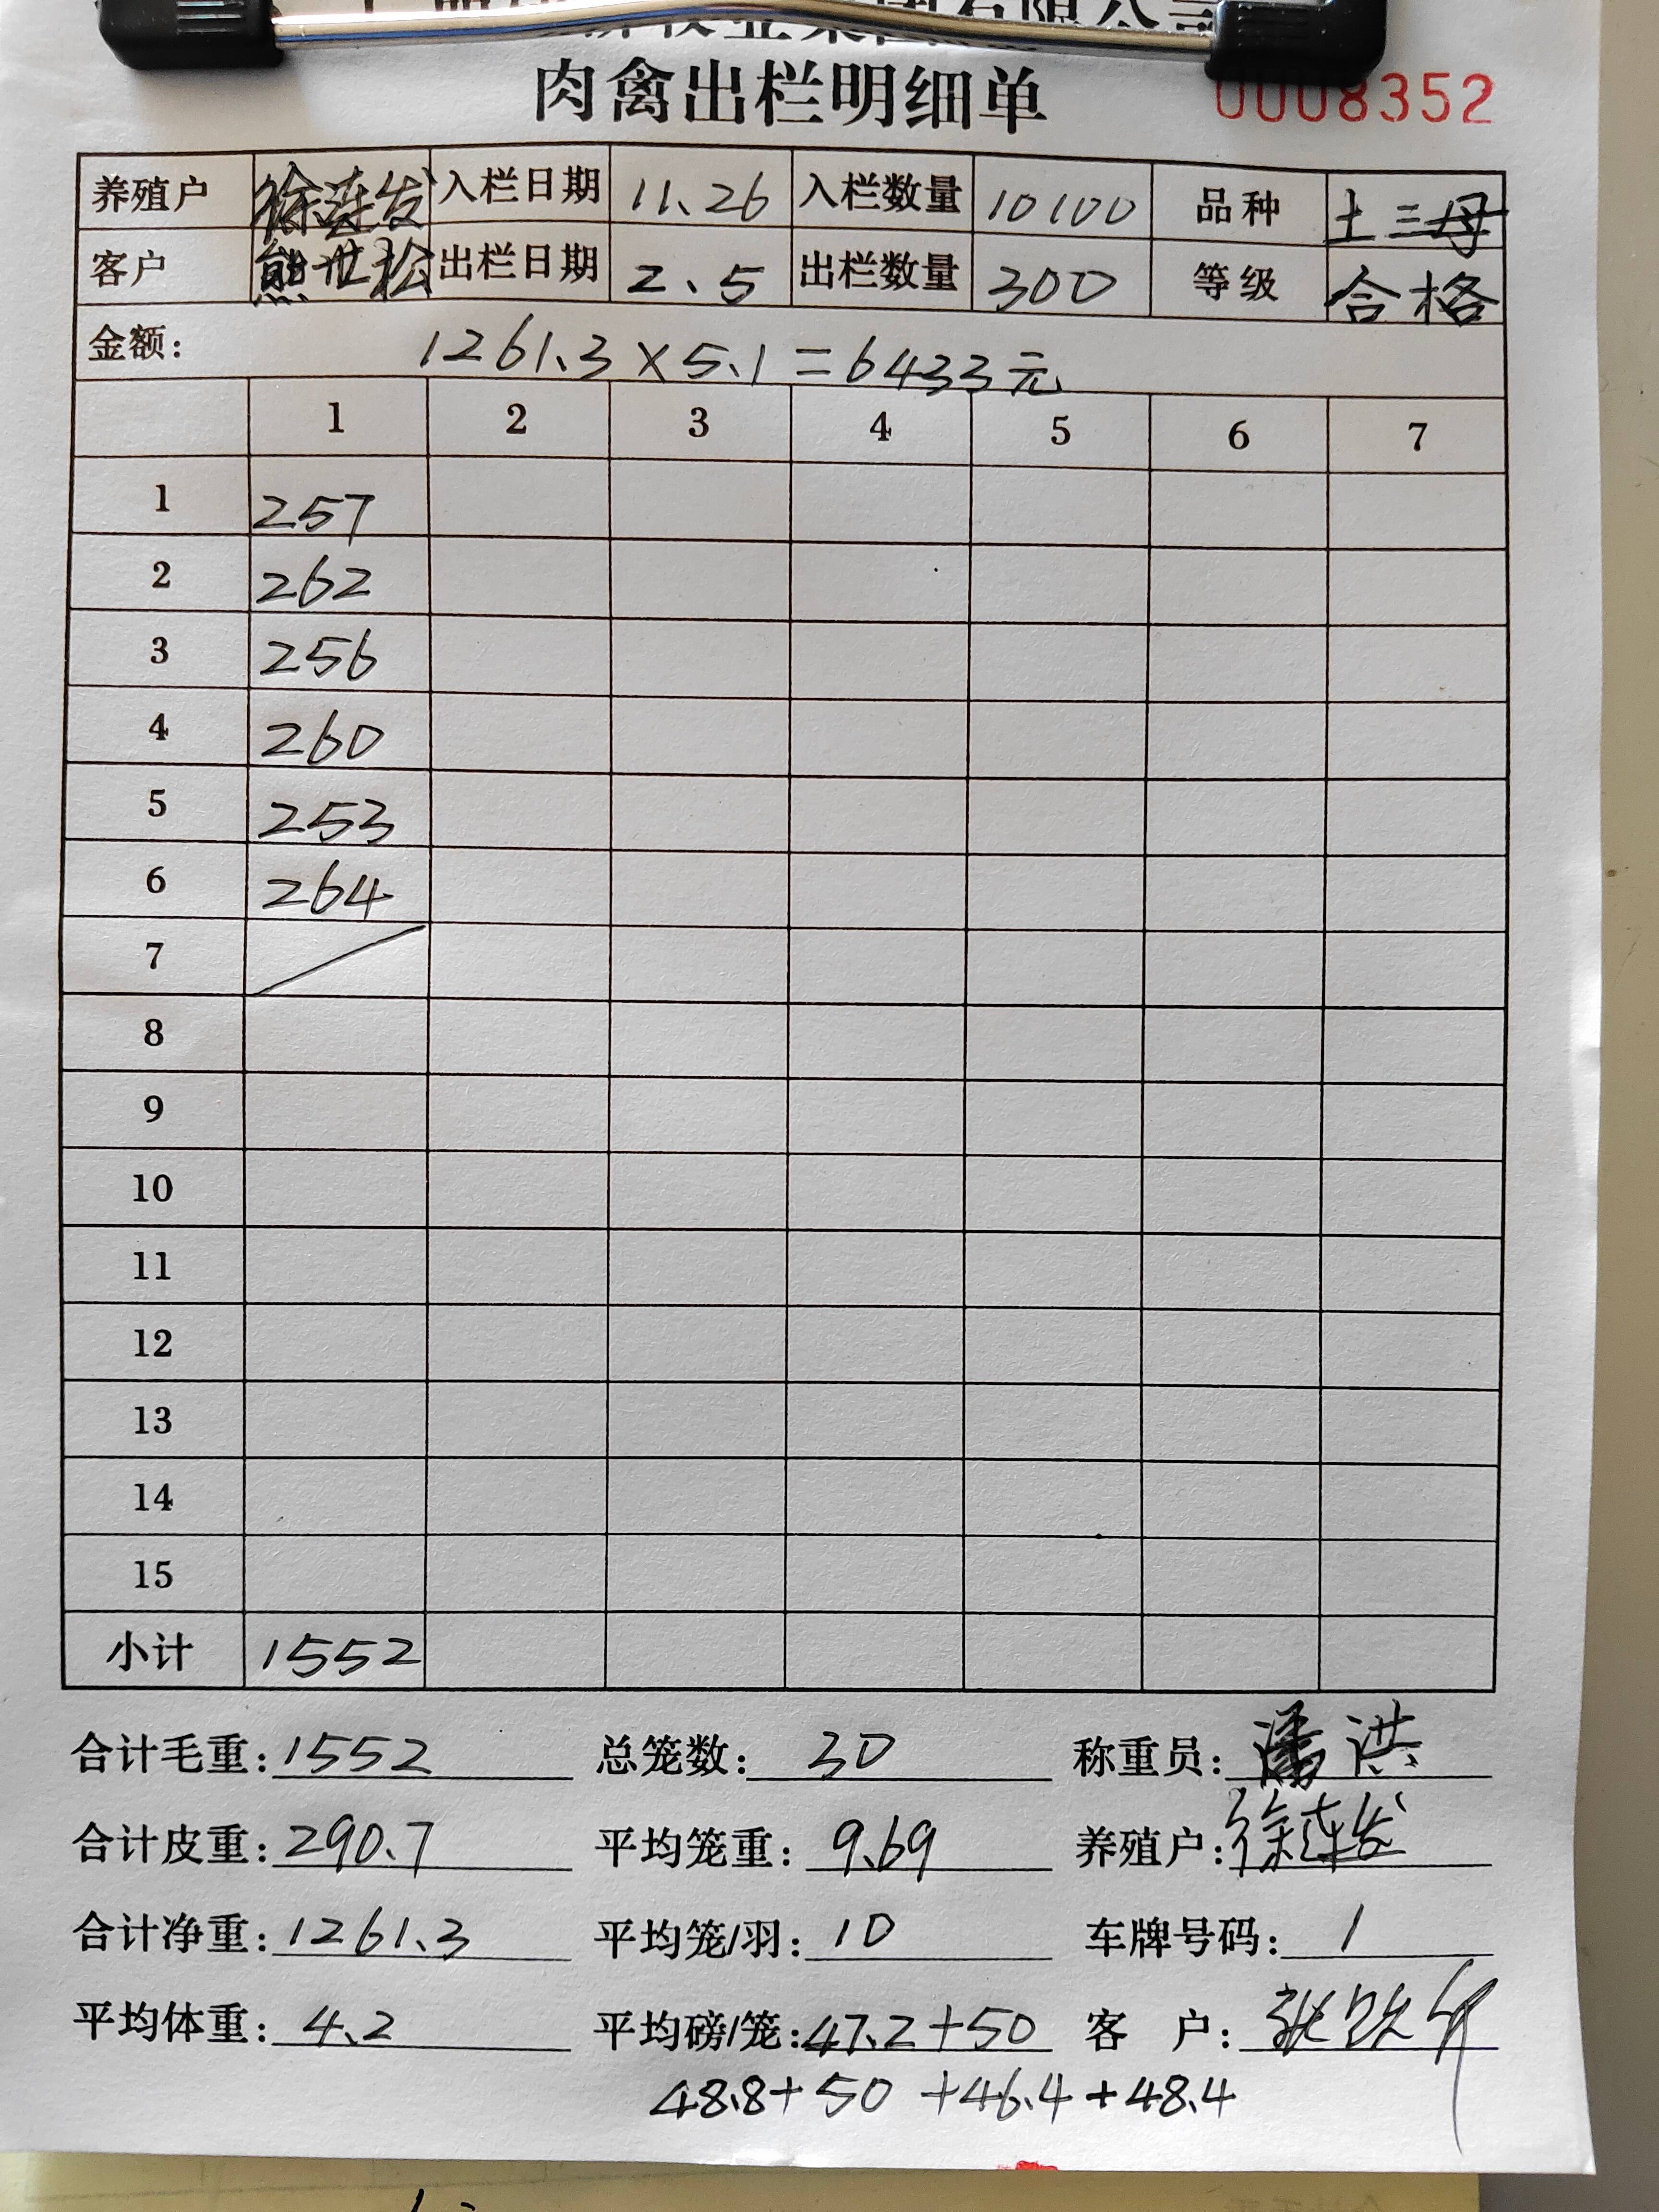 肉禽出栏明细单 0008352
养殖户 徐连发 入栏日期 11.26 入栏数量 10100 品种 土三母
客户 熊世松 出栏日期 2.5 出栏数量 300 等级 合格
金额: 1261.3×5.1=6433元
1 2 3 4 5 6 7
1 257
2 262
3 256
4 260
5 253
6 264
7
8
9
10
11
12
13
14
15
小计 1552
合计毛重: 1552 总笼数: 30 称重员: 潘洪
合计皮重: 290.7 平均笼重: 9.69 养殖户: 徐连发
合计净重: 1261.3 平均笼/羽: 10 车牌号码: 1
平均体重: 4.2 平均磅/笼: 47.2+50 客 户:
48.8+50+46.4+48.4